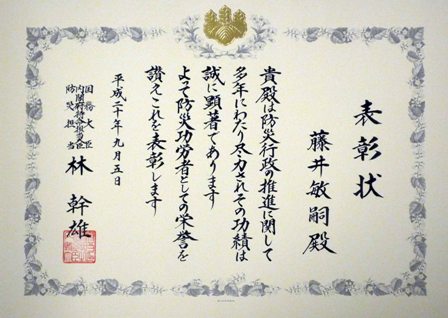 表彰状
藤井敏嗣殿
貴殿は防災行政の推進に関して
多年にわたり尽力されその功績は
誠に顕著であります
よって防災功労者としての栄誉を
讃えこれを表彰します
平成二十年九月五日
国務大臣
内閣府特命担当大臣
防災担当
林幹雄